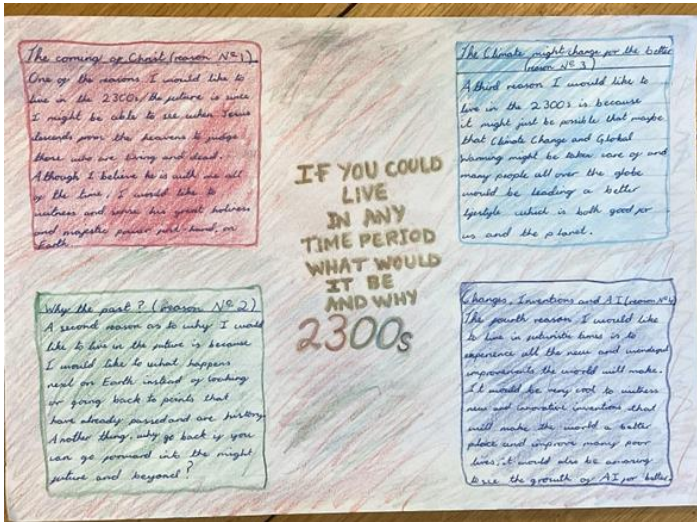 The coming of Christ (reason Nº1)
One of the reasons I would like to
live in the 2300s/the future is since
I might be able to see when Jesus
descends from the heavens to judge
those who are living and dead.
Although I believe he is with me all
of the time, I would like to
witness and some his great holiness
and majestic power first-hand, on
Earth.
Why the past? (reason Nº 2)
A second reason as to why I would
like to live in the future is because
I would like to what happens
next on Earth instead of looking
or going back to points that
have already passed and are history.
Another thing, why go back if you
can go forward into the might
future and beyond?
IF YOU COULD
LIVE
IN ANY
TIME PERIOD
WHAT WOULD
IT BE
AND WHY
2300s
The Climate might change for the better
(reason Nº 3)
A third reason I would like to
live in the 2300s is because
it might just be possible that maybe
that Climate Change and Global
Warming might be taken care of and
many people all over the globe
would be leading a better
lifestyle which is both good for
us and the planet.
Changes, Inventions and AI (reason Nº4)
The fourth reason I would like
to live in futuristic times is to
experience all the new and
improvements the world will make.
It would be very cool to witness
new and innovative inventions that
will make the world a better
place and improve many poor
lives, it would also be amazing
to see the growth of AI for better.